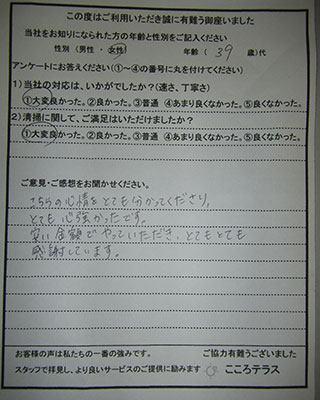 この度はご利用いただき誠に有難う御座いました
当社をお知りになられた方の年齢と性別をご記入ください
性別(男性・女性) 年齢( 39 歳)代
アンケートにお答えください(①~④の番号に丸を付けてください)
1)当社の対応は、いかがでしたか?(速さ、丁寧さ)
①大変良かった。②良かった。③普通 ④あまり良くなかった。⑤良くなかった。
2)清掃に関して、ご満足はいただけましたか?
①大変良かった。②良かった。③普通 ④あまり良くなかった。⑤良くなかった。
ご意見・ご感想をお聞かせください。
こちらの心情をとても分かってくださり、
とても心強かったです。
安い金額でやっていただき、とてもとても
感謝しています。
お客様の声は私たちの一番の強みです。 ご協力有難うございました
スタッフで拝見し、より良いサービスのご提供に励みます こころテラス